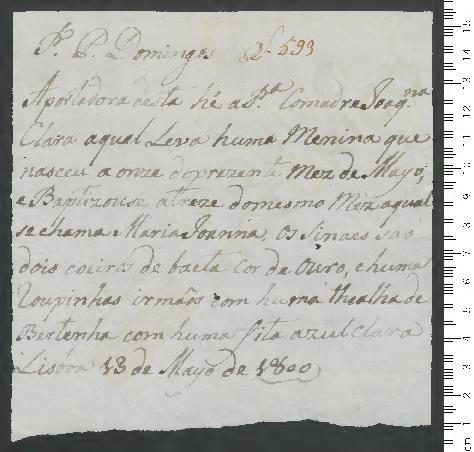 Sr. P. Domingos Nº 593
Aportadora desta hé a Srª Comadre Joaqna
Clara aqual Leva huma Menina que
nasceu a onze doprezente Mez de Mayo,
e Baptizouse atreze domesmo Mez aqual
se chama Maria Joanna, os Sinaes saõ
dois coeiros de baeta Cor de Ouro, e huma
Roupinhas irmãs com huma thoalha de
Bertenha com huma fita azul Clara
Lisboa 13 de Mayo de 1800
cm 1 2 3 4 5 6 7 8 9 10 11 12 13 14 15